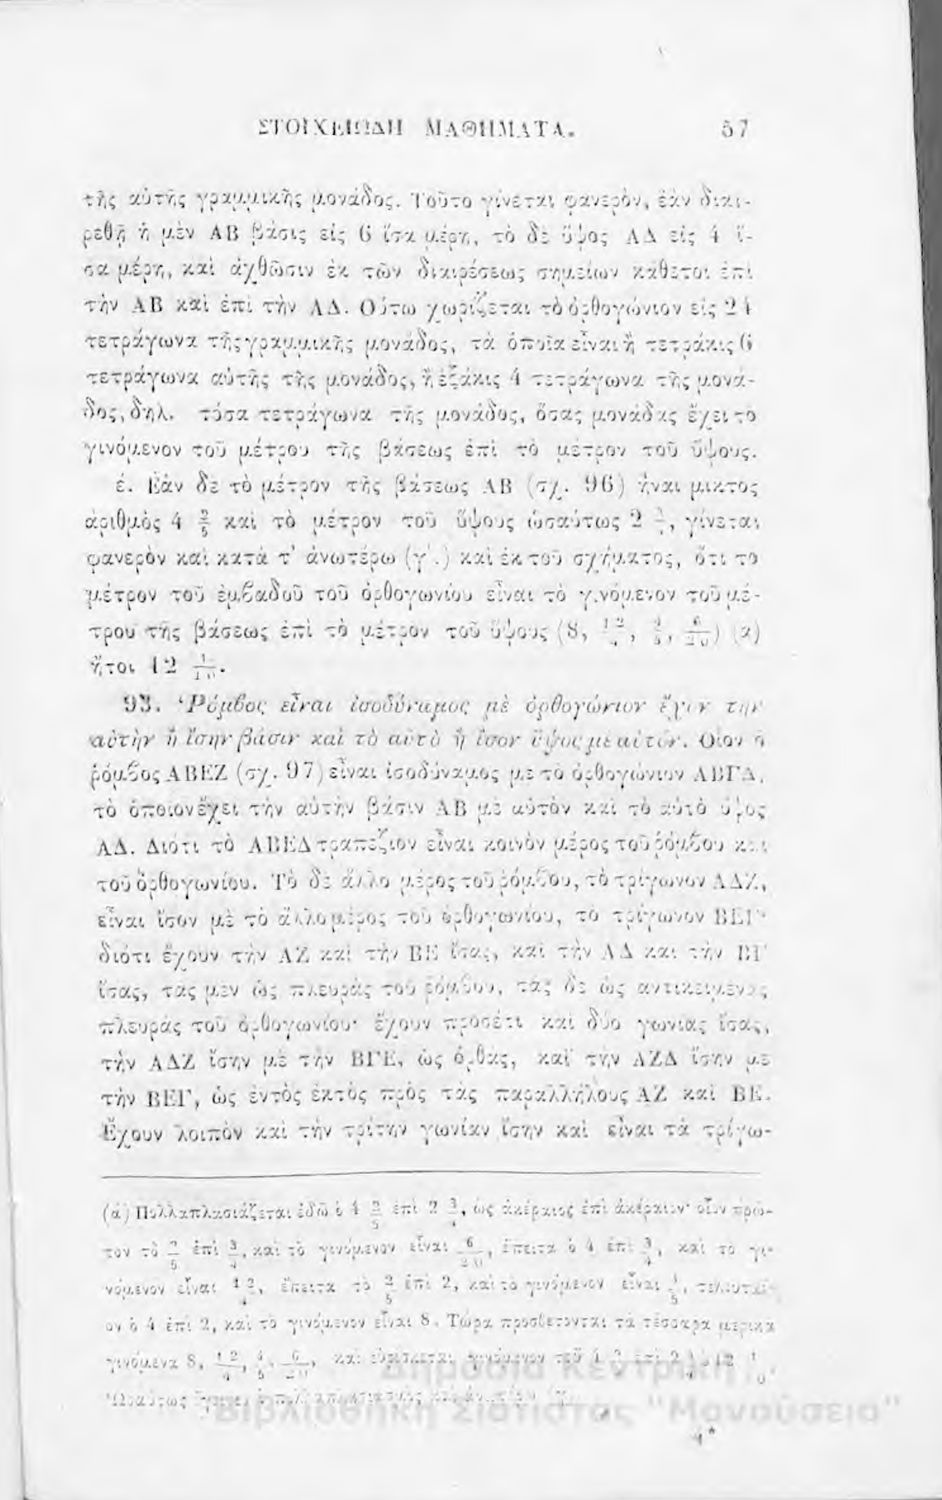 ΣΤΟΙΧΕΙΩΔΗ ΜΑΘΗΜΑΤΑ. 57
τῆς αὐτῆς γραμμικῆς μονάδος. Τοῦτο γίνεται φανερὸν, ἐὰν διαι-
ρεθῇ ἡ μὲν ΑΒ βάσις εἰς 6 ἴσα μέρη, τὸ δὲ ὕψος ΑΔ εἰς 4 ἴ-
σα μέρη, καὶ ἀχθῶσιν ἐκ τῶν διαιρέσεως σημείων κάθετοι ἐπὶ
τὴν ΑΒ καὶ ἐπὶ τὴν ΑΔ. Οὕτω χωρίζεται τὸ ὀρθογώνιον εἰς 24
τετράγωνα τῆς γραμμικῆς μονάδος, τὰ ὁποῖα εἶναι ἢ τετράκις 6
τετράγωνα αὐτῆς τῆς μονάδος, ἢ ἑξάκις 4 τετράγωνα τῆς μονά-
δος, δηλ. τόσα τετράγωνα τῆς μονάδος, ὅσας μονάδας ἔχει τὸ
γινόμενον τοῦ μέτρου τῆς βάσεως ἐπὶ τὸ μέτρον τοῦ ὕψους.
έ. Ἐὰν δὲ τὸ μέτρον τῆς βάσεως ΑΒ (σχ. 96) ἦναι μικτὸς
ἀριθμὸς 4 2/5 καὶ τὸ μέτρον τοῦ ὕψους ὡσαύτως 2 , γίνεται
φανερὸν καὶ κατὰ τ' ἀνωτέρω (γ΄.) καὶ ἐκ τοῦ σχήματος, ὅτι τὸ
μέτρον τοῦ ἐμβαδοῦ τοῦ ὀρθογωνίου εἶναι τὸ γινόμενον τοῦ μέ-
τρου τῆς βάσεως ἐπὶ τὸ μέτρον τοῦ ὕψους (8, 12/4, 4/5, 6/20) (α)
ἤτοι 12 1/10.
93. Ῥόμβος εἶναι ἰσοδύναμος μὲ ὀρθογώνιον ἔχον τὴν
αὐτὴν ἢ ἴσην βάσιν καὶ τὸ αὐτὸ ἢ ἴσον ὕψος μὲ αὐτόν. Οἷον ὁ
ῥόμβος ΑΒΕΖ (σχ. 97) εἶναι ἰσοδύναμος μὲ τὸ ὀρθογώνιον ΑΒΓΔ,
τὸ ὁποῖον ἔχει τὴν αὐτὴν βάσιν ΑΒ μὲ αὐτὸν καὶ τὸ αὐτὸ ὕψος
ΑΔ. Διότι τὸ ΑΒΕΔ τραπέζιον εἶναι κοινὸν μέρος τοῦ ῥόμβου καὶ
τοῦ ὀρθογωνίου. Τὸ δὲ ἄλλο μέρος τοῦ ῥόμβου, τὸ τρίγωνον ΑΔΖ,
εἶναι ἴσον μὲ τὸ ἄλλο μέρος τοῦ ὀρθογωνίου, τὸ τρίγωνον ΒΕΓ·
διότι ἔχουν τὴν ΑΖ καὶ τὴν ΒΕ ἴσας, καὶ τὴν ΑΔ καὶ τὴν ΒΓ
ἴσας, τὰς μὲν ὡς πλευρὰς τοῦ ῥόμβου, τὰς δὲ ὡς ἀντικειμένας
πλευρὰς τοῦ ὀρθογωνίου· ἔχουν προσέτι καὶ δύο γωνίας ἴσας,
τὴν ΑΔΖ ἴσην μὲ τὴν ΒΓΕ, ὡς ὀρθὰς, καὶ τὴν ΑΖΔ ἴσην μὲ
τὴν ΒΕΓ, ὡς ἐντὸς ἐκτὸς πρὸς τὰς παραλλήλους ΑΖ καὶ ΒΕ.
Ἔχουν λοιπὸν καὶ τὴν τρίτην γωνίαν ἴσην καὶ εἶναι τὰ τρίγω-
(α) Πολλαπλασιάζεται ἐδῶ ὁ 4 2/5 ἐπὶ 2 3/4, ὡς ἀκέραιος ἐπὶ ἀκέραιον· οἷον πρῶ-
τον τὸ 2/5 ἐπὶ 3/4, καὶ τὸ γινόμενον εἶναι 6/20, ἔπειτα ὁ 4 ἐπὶ 3/4, καὶ τὸ γι-
νόμενον εἶναι 12/4, ἔπειτα τὸ 2/5 ἐπὶ 2, καὶ τὸ γινόμενον εἶναι 4/5, τελευταῖ-
ον ὁ 4 ἐπὶ 2, καὶ τὸ γινόμενον εἶναι 8. Τώρα προσθέτονται τὰ τέσσαρα μερικὰ
γινόμενα 8, 12/4, 4/5, 6/20, καὶ εὑρίσκεται γινόμενον τοῦ
Ὡσαύτως
4*
Δημόσια Κεντρική
Βιβλιοθήκη Σιάτιστας "Μανούσεια"